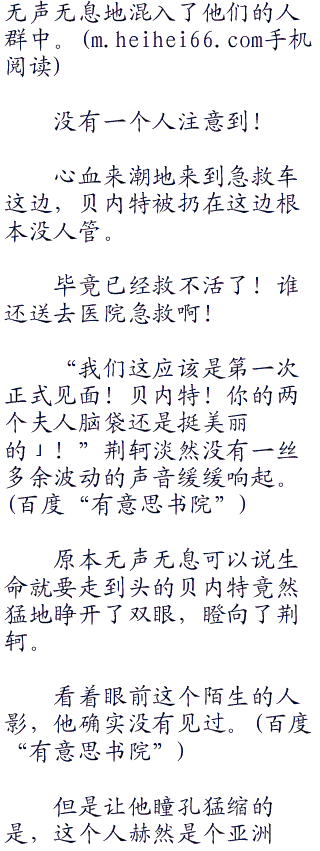 无声无息地混入了他们的人
群中。(m.heihei66.com手机
阅读)
没有一个人注意到！
心血来潮地来到急救车
这边，贝内特被扔在这边根
本没人管。
毕竟已经救不活了！谁
还送去医院急救啊！
“我们这应该是第一次
正式见面！贝内特！你的两
个夫人脑袋还是挺美丽
的」！”荆轲淡然没有一丝
多余波动的声音缓缓响起。
(百度“有意思书院”)
原本无声无息可以说生
命就要走到头的贝内特竟然
猛地睁开了双眼，瞪向了荆
轲。
看着眼前这个陌生的人
影，他确实没有见过。(百度
“有意思书院”)
但是让他瞳孔猛缩的
是，这个人赫然是个亚洲